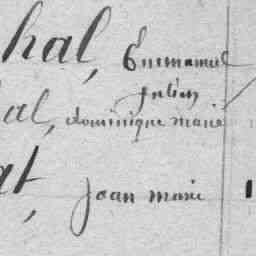 hal, Emmanuel
Julien
al, dominique marie
at, Jean marie 1